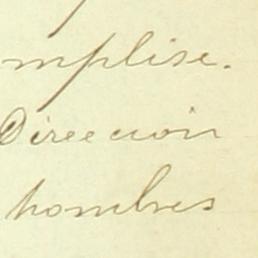 mplise.
Direccion
hombres